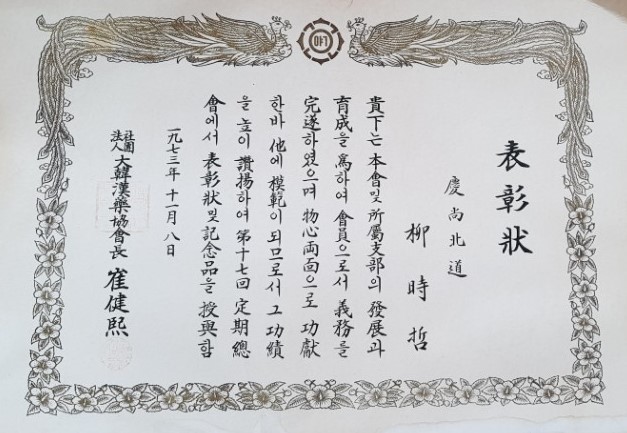 表彰狀
慶尚北道
柳時哲
貴下는 本會및 所屬支部의 發展과
育成을 爲하여 會員으로서 義務를
完遂하였으며 物心両面으로 功獻
한바 他에 模範이 되므로서 그 功績
을 높이 讚揚하여 第十七回 定期總
會에서 表彰狀및 記念品을 授與함
一九七三年 十一月 八日
社團法人 大韓漢藥協會長 崔健熙